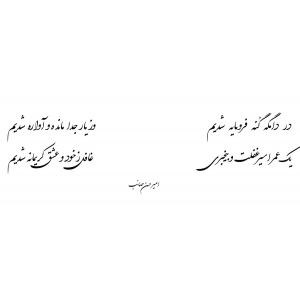 در دامگه گنه فرومایه شدیم وز یار جدا مانده و آواره شدیم
یک عمر اسیر غفلت و بیخبری غافل ز خود و عشق کریمانه شدیم